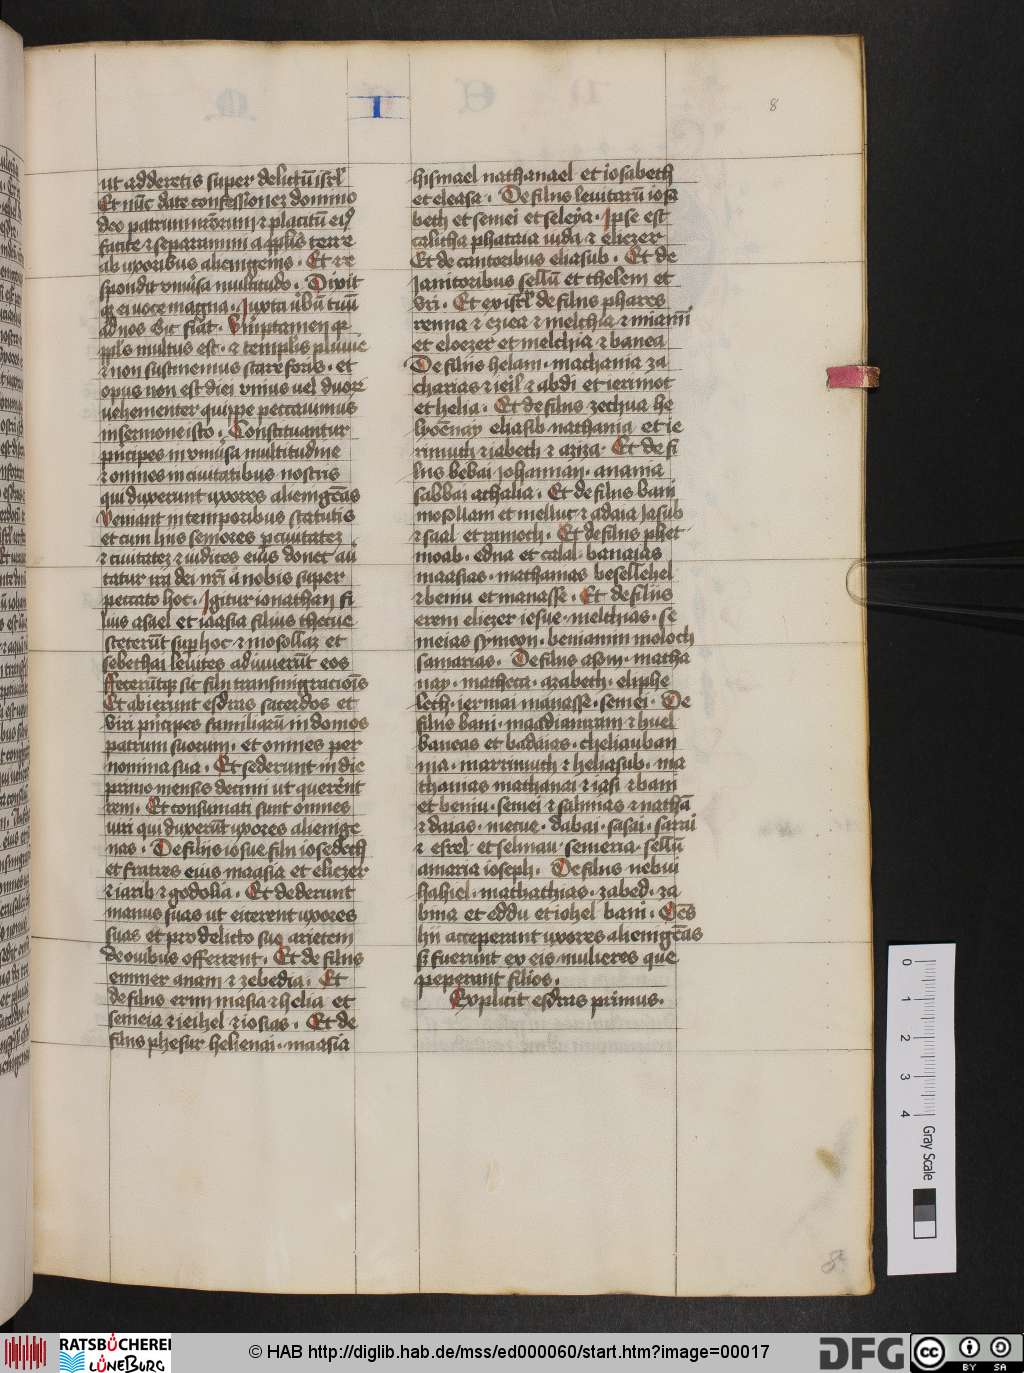 I
8
ut adderetis super delictū isrl̄
Et nūc date confessionez domino
deo patrum nr̄orum ⁊ placitū eiꝰ
facite ⁊ separamini a pplis terre
ab uxoribus alienigenis . Et re
spondit vniūsa multitudo . Dixit
qꝫ ei voce magna . Juxta v̄bū tuū
ad nos sic fiat . Vruptamen qꝫ
ppl̄s multus est . ⁊ templis pluuie
⁊ non sustinemus stare foris . et
opus non est diei vnius uel duorꝝ
vehementer quippe peccauimus
in sermone isto . Constituantur
prīcipes in vniūsa multitudine
⁊ omnes in ciuitatibus nostris
qui duxerunt uxores alienigēas
veniant in temporibus statutis
et cum hiis seniores p ciuitatez
⁊ ciuitatez ⁊ iudices eius donec aū
tatur ira dei nr̄i a nobis super
peccato hoc . Igitur ionathan fi
lius asael et iaasia filius thecue
steterūt sup hoc ⁊ mosollaz et
sebethai leuites adiuuerūt eos
ffecerūtqꝫ sic filii transmigracioīs
Et abierunt esdras sacerdos et
viri prīcipes familiarū in domos
patrum suorum . et omnes per
nomina sua . Et sederunt in die
primo mensis decimi ut quererēt
rem . Et consumati sunt omnes
uiri qui duxerūt uxores alienige
nas . De filiis iosue filii iosedech
et fratres eius maasia et eliezer
⁊ iarib ⁊ godolia . Et dederunt
manus suas ut eicerent uxores
suas et pro delicto suo arietem
de ouibus offerrent . Et de filiis
emmer anam ⁊ zebedia . Et
de filiis erim masia ⁊ helia et
semeia ⁊ ieihel ⁊ iosias . Et de
filiis phesur helienai . maasia
hismael nathanael et iosabeth
et eleasa . De filiis leuitarū iosa
beth et semei et seleya . Ipse est
calitha phataia iuda ⁊ eliezer
Et de cantoribus eliasub . Et de
Janitoribus sellū et thelem et
vri . Et ex isrl̄ de filiis phares
remia ⁊ eziea ⁊ melchia ⁊ miamī
et eloezer et melchia ⁊ banea
De filiis helam . mathania za
charias ⁊ ieil ⁊ abdi et ierimot
et helia . Et de filiis zechua he
lyoēnay eliasib nathania et ie
rimuth ⁊ iabeth ⁊ aziza . Et de fi
liis bebai iohannan . anania
sabbai athalia . Et de filiis bani
mosollam et melluc ⁊ adaia Jasub
⁊ saal et ramoth . Et de filiis phet
moab . edna et calal . banaias
maasias . mathanias besellehel
⁊ beniu et manasse . Et de filiis
erem eliezer iesue . melchias . se
meias symeon . beniamin moloch
samarias . De filiis asom . matha
nay . mathetta . azabeth . eliphe
leth . iermai manasse . semei . De
filiis bani . maadi amram ⁊ huel
baneas et badaias . cheliauban
nia . marrimuth ⁊ heliasub . ma
thanias mathanai ⁊ iasi ⁊ bani
et beniu . semei ⁊ salmias ⁊ nathā
⁊ daias . metue . dabai . sasai . sarai
⁊ esrel et selmau . semeria . sellū
amaria ioseph . De filiis nebui
hahiel . mathathias . zabed . za
bina et eddu et iohel bani . Oēs
hii acceperant uxores alienigēas
⁊ fuerunt ex eis mulieres que
pepererant filios .
Explicit esdras primus .
8.
0
1
2
3
4
Gray Scale
RATSBÜCHEREI
LÜNEBURG
© HAB http://diglib.hab.de/mss/ed000060/start.htm?image=00017
DFG
cc
BY
SA